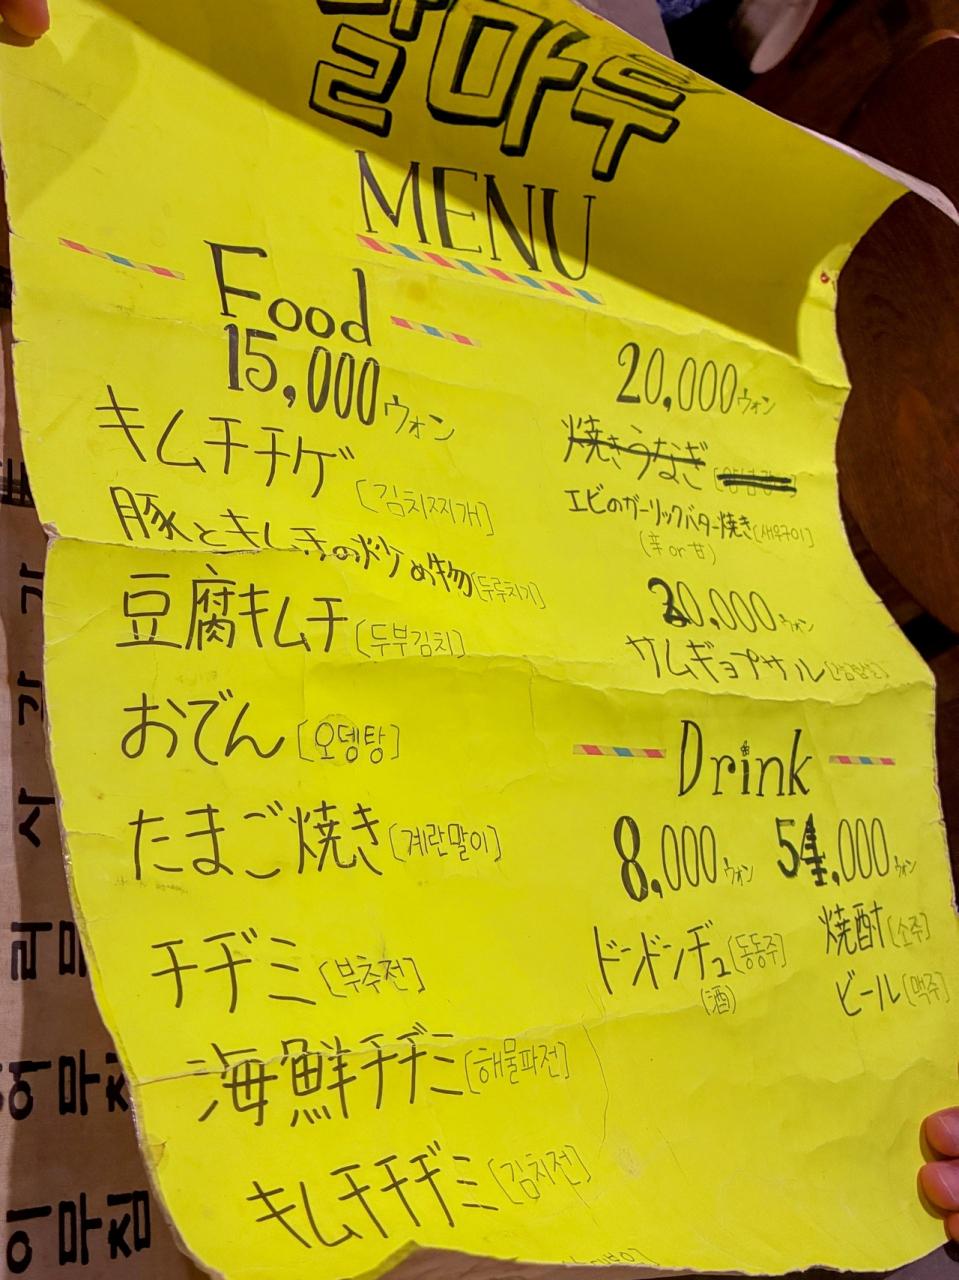 말마루
MENU
Food
15,000ウォン
キムチチゲ[김치찌개]
豚とキムチの炒め物[두루치기]
豆腐キムチ[두부김치]
おでん[오뎅탕]
たまご焼き[계란말이]
チヂミ[부추전]
海鮮チヂミ[해물파전]
キムチチヂミ[김치전]
20,000ウォン
焼きうなぎ
エビのガーリックバター焼き[새우구이]
(辛 or 甘)
20,000ウォン
サムギョプサル
Drink
8,000ウォン
ドンドンヂュ[동동주]
(酒)
5,000ウォン
焼酎[소주]
ビール[맥주]